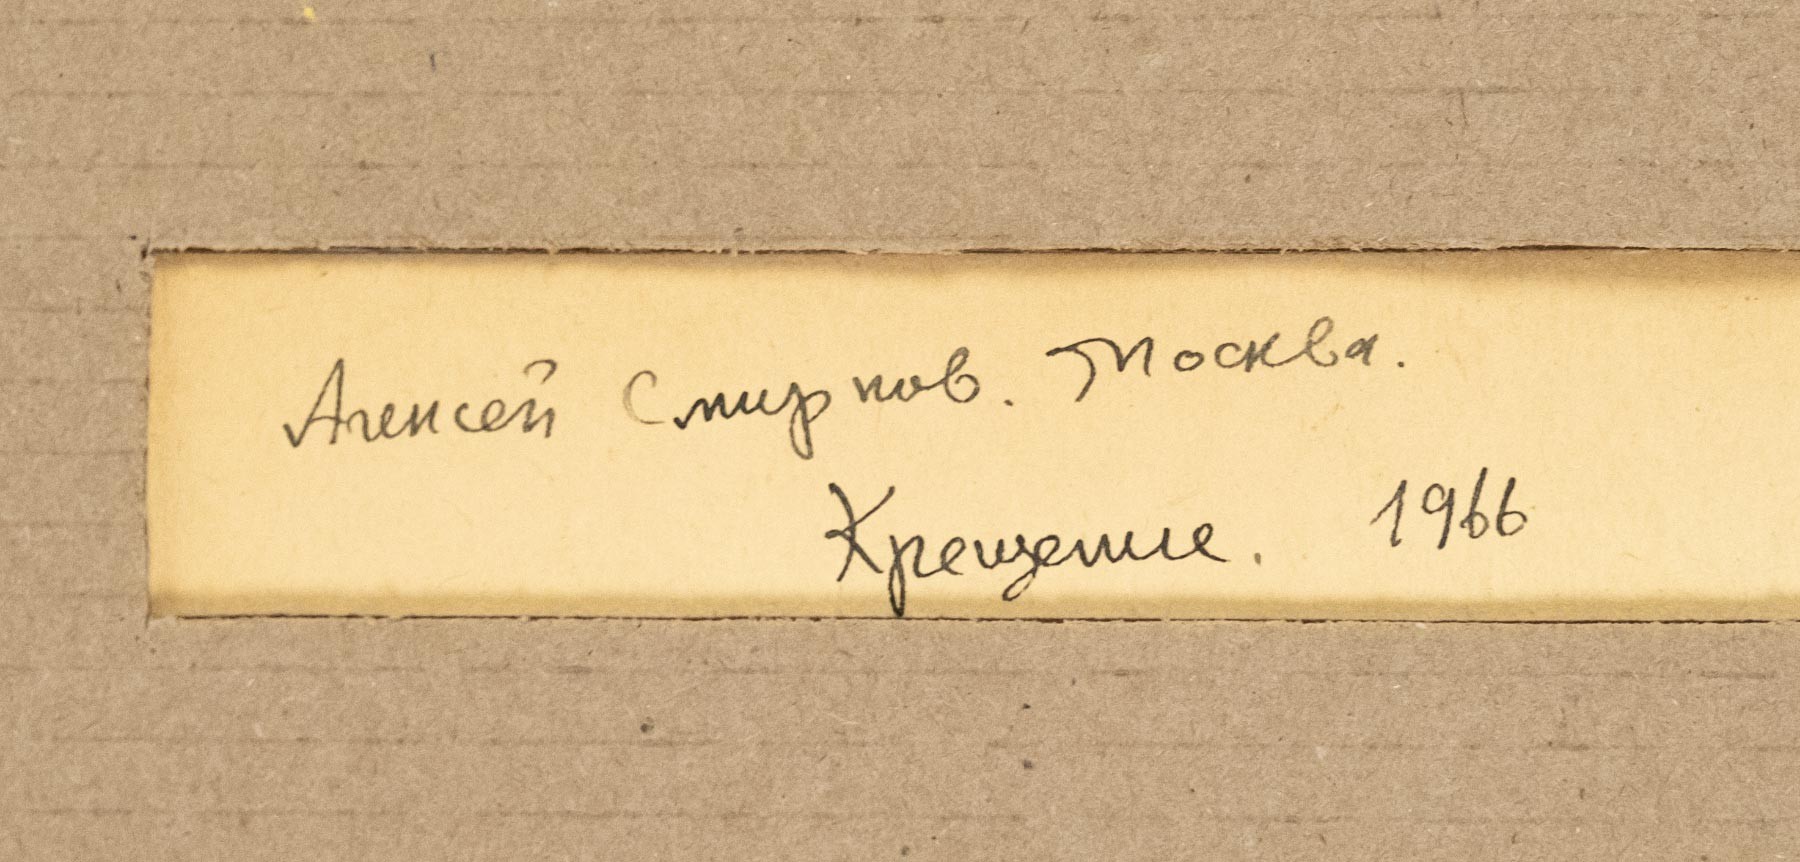 Алексей Смирнов. Москва.
Крещение. 1966